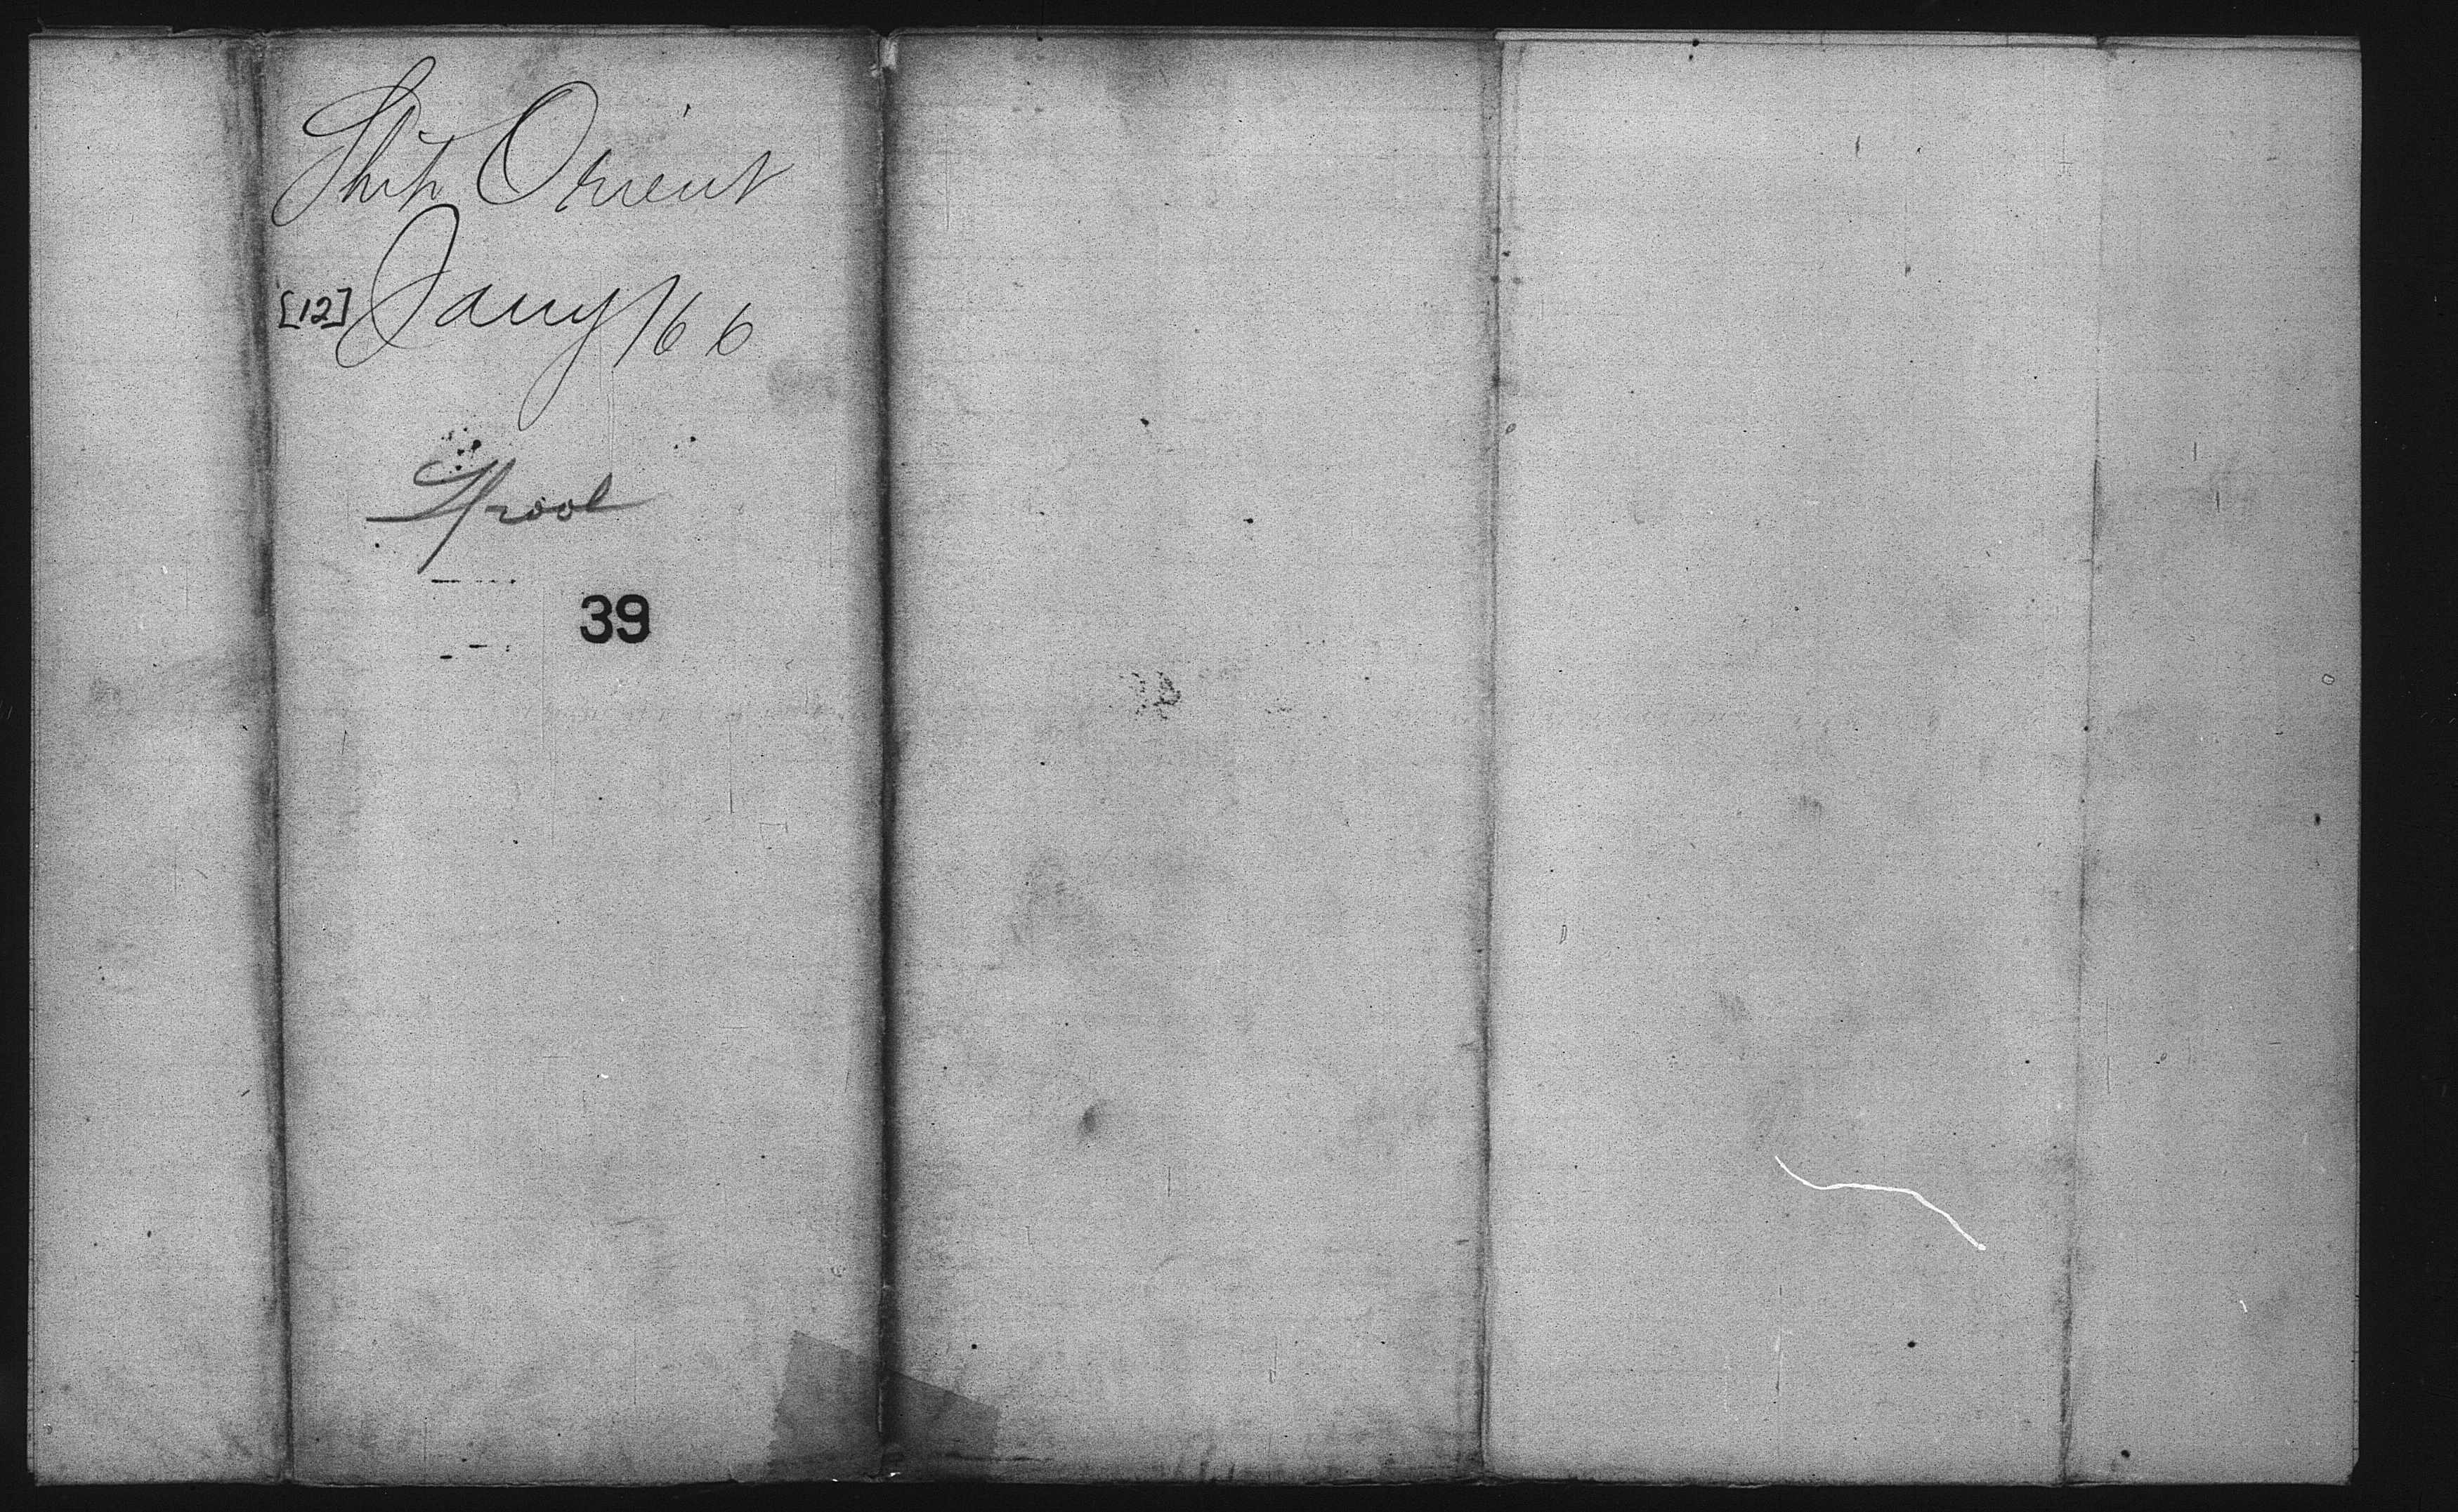 Ship Orient
[12] Jany 16 6
Lpool
39